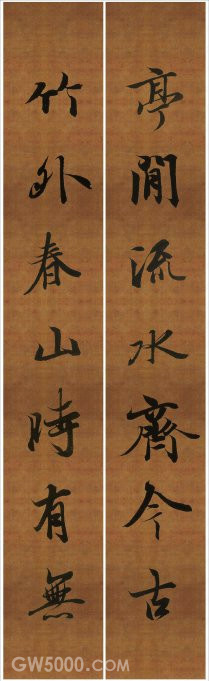 亭間流水齋今古
竹外春山時有無
GW5000.COM